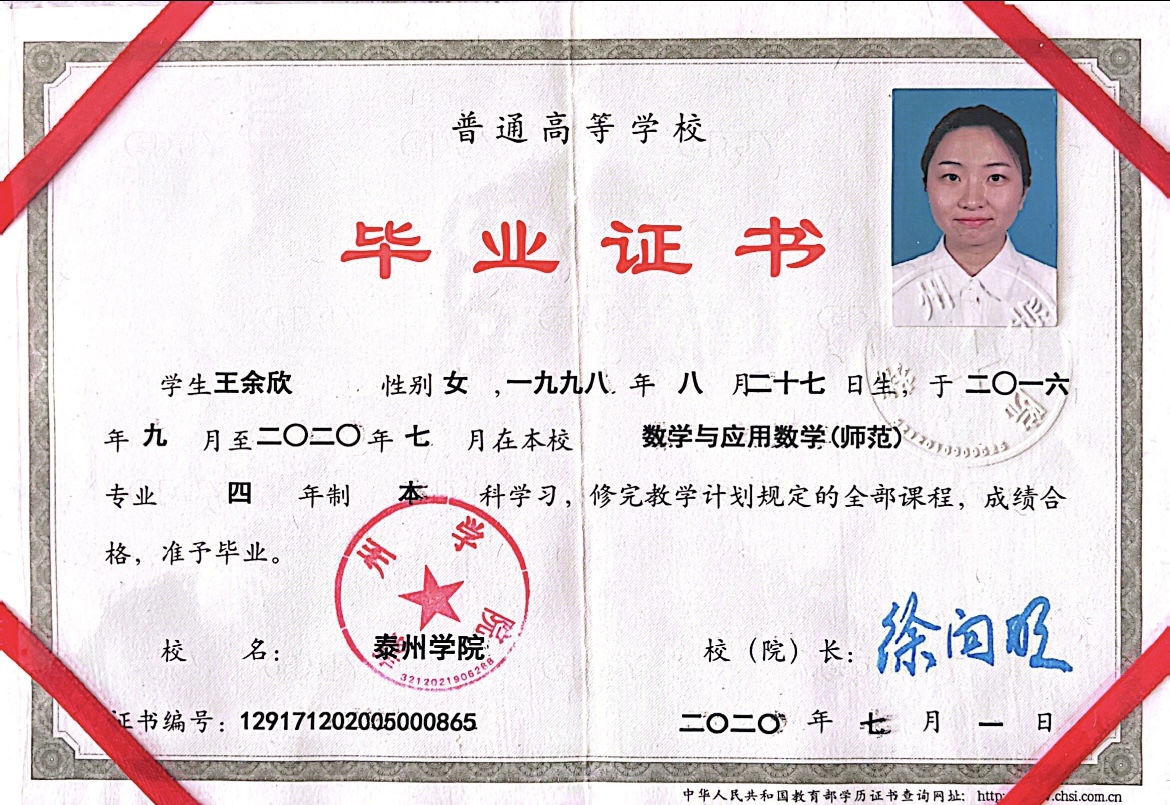 普通高等学校
毕业证书
学生王余欣 性别 女 ,一九九八 年 八 月二十七 日生, 于 二〇一六
年 九 月至二〇二〇年 七 月在本校 数学与应用数学(师范)
专业 四 年制 本 科学习, 修完教学计划规定的全部课程, 成绩合
格, 准予毕业。
泰州学院
3212021906288
校 名: 泰州学院
校（院）长: 徐向明
证书编号: 129171202005000865
二〇二〇 年 七 月 一 日
中华人民共和国教育部学历证书查询网址: .chsi.com.cn
州 泰
院